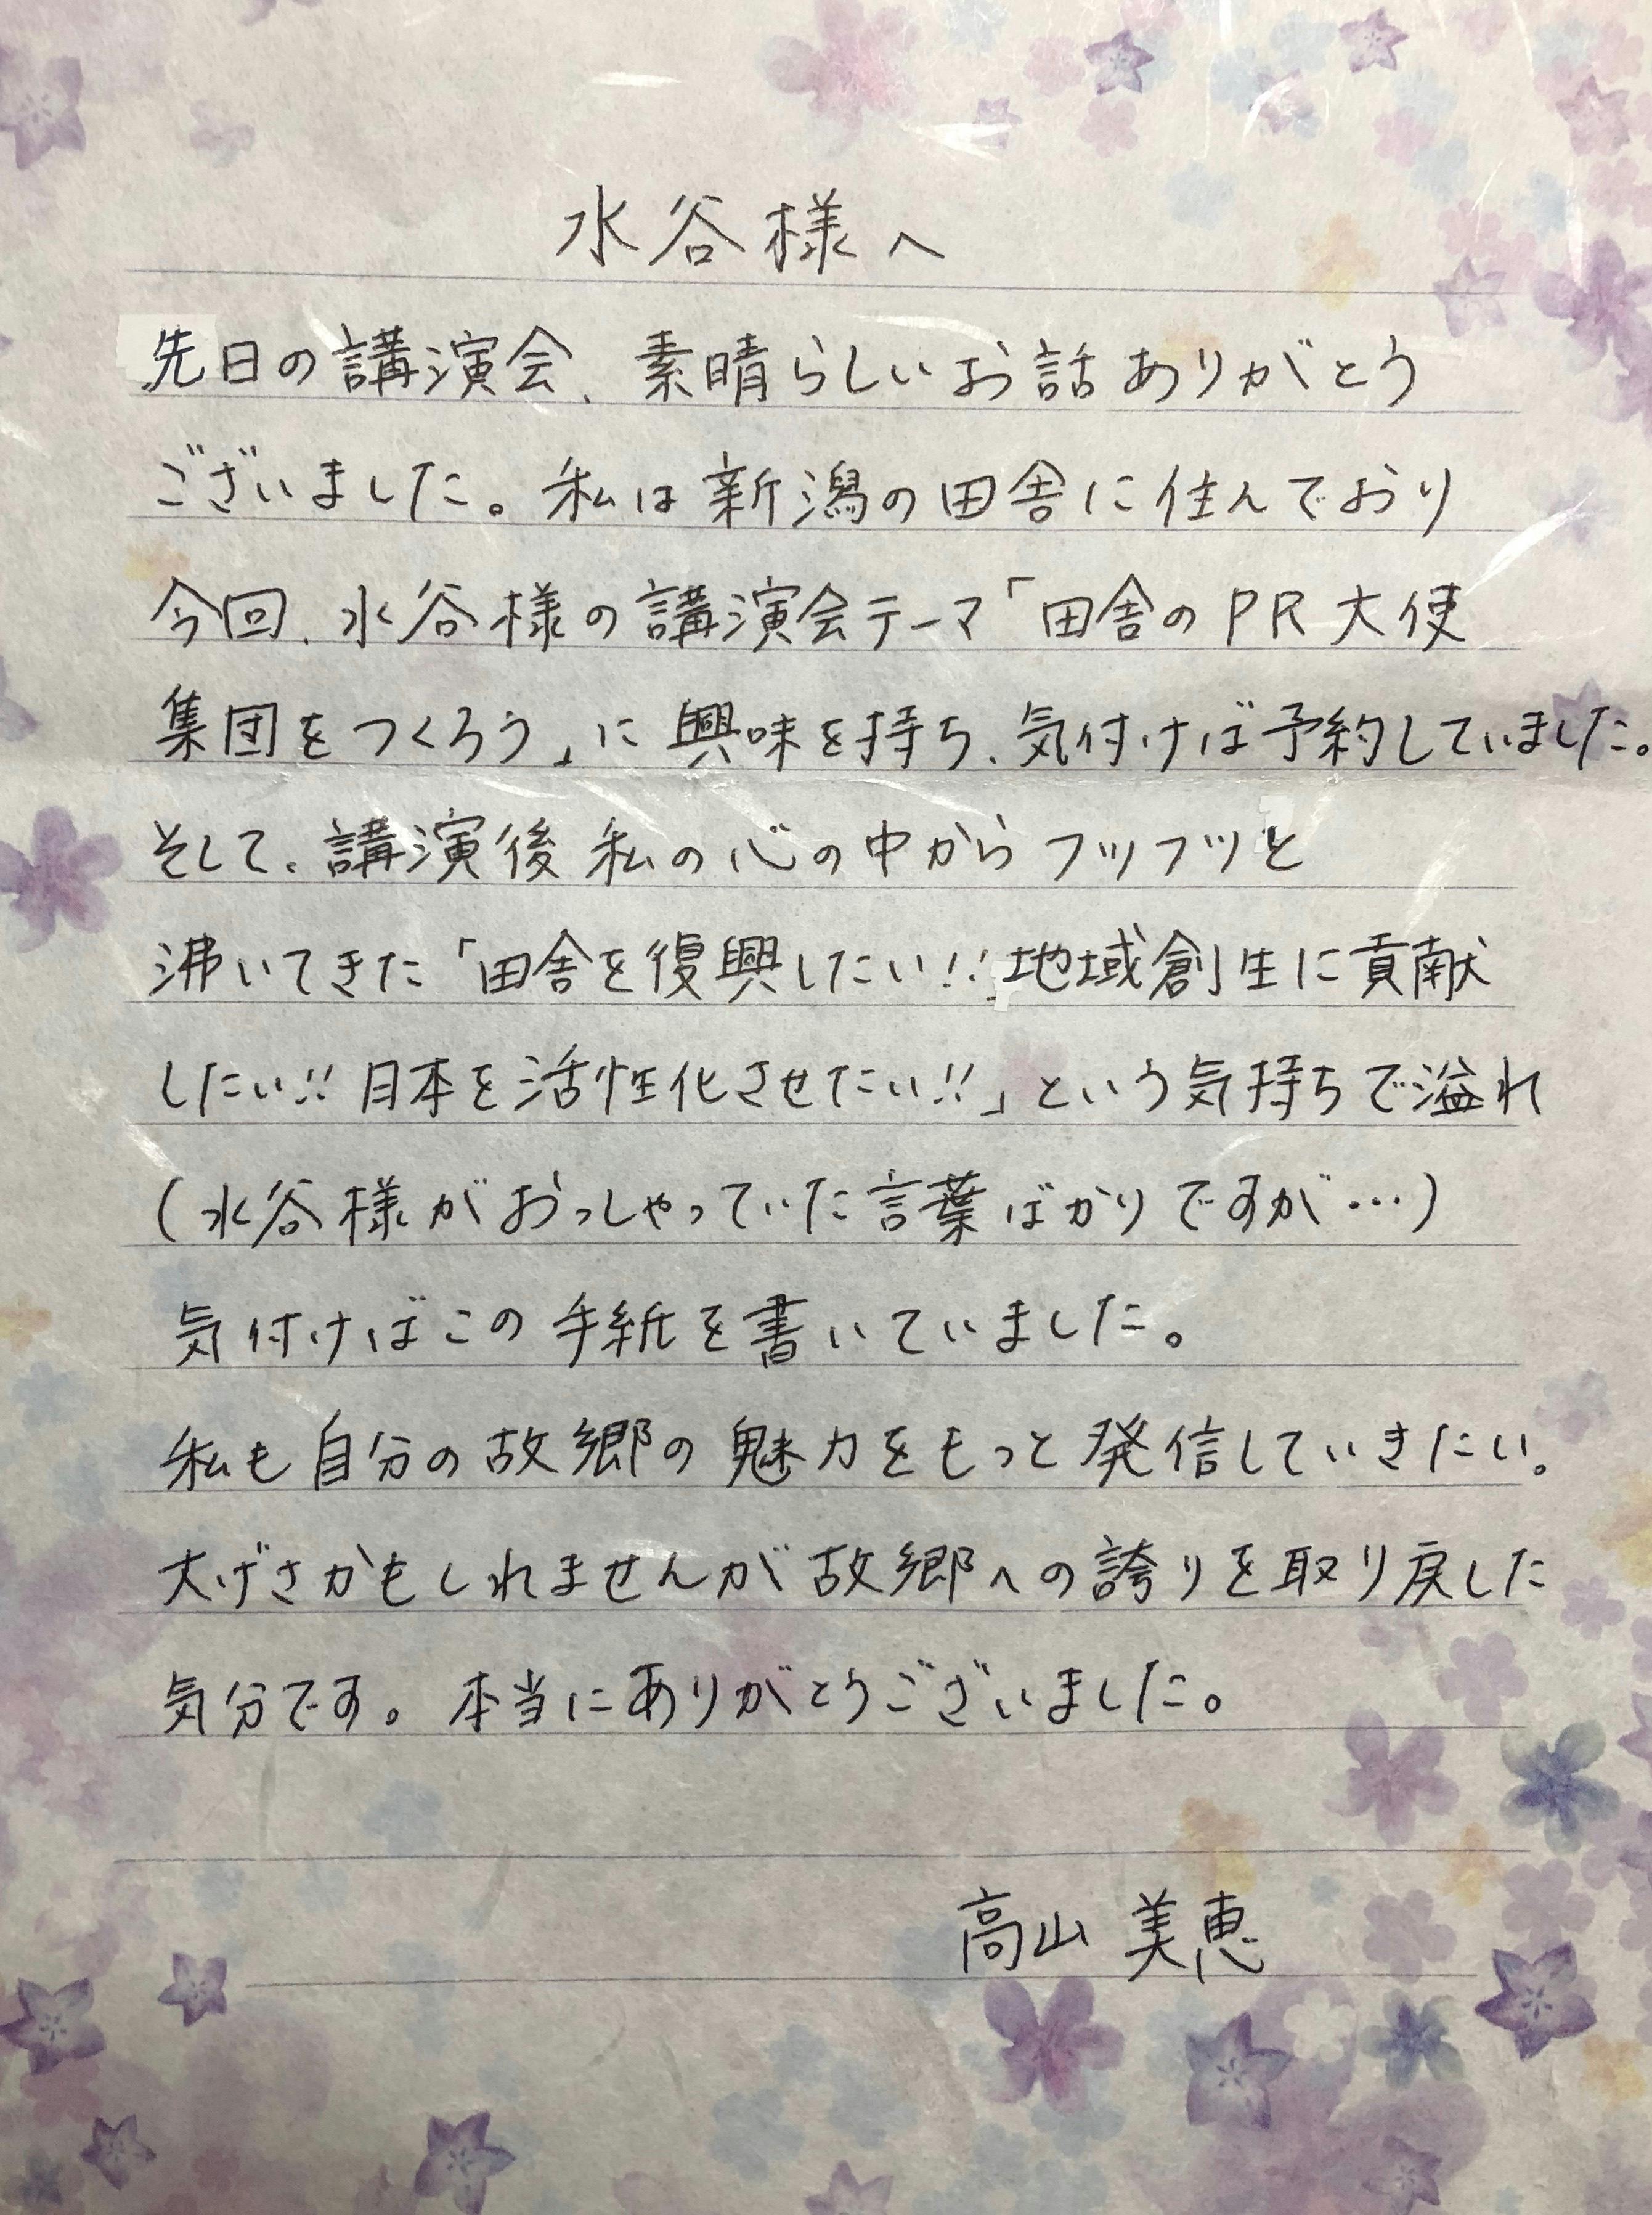 水谷様へ
先日の講演会、素晴らしいお話ありがとう
ございました。私は新潟の田舎に住んでおり
今回、水谷様の講演会テーマ「田舎のPR大使
集団をつくろう」に興味を持ち、気付けば予約していました。
そして、講演後私の心の中からフツフツと
沸いてきた「田舎を復興したい!!」地域創生に貢献
したい!!日本を活性化させたい!!」という気持ちで溢れ
(水谷様がおっしゃっていた言葉ばかりですが…)
気付けばこの手紙を書いていました。
私も自分の故郷の魅力をもっと発信していきたい。
大げさかもしれませんが故郷への誇りを取り戻した
気分です。本当にありがとうございました。
高山 美恵